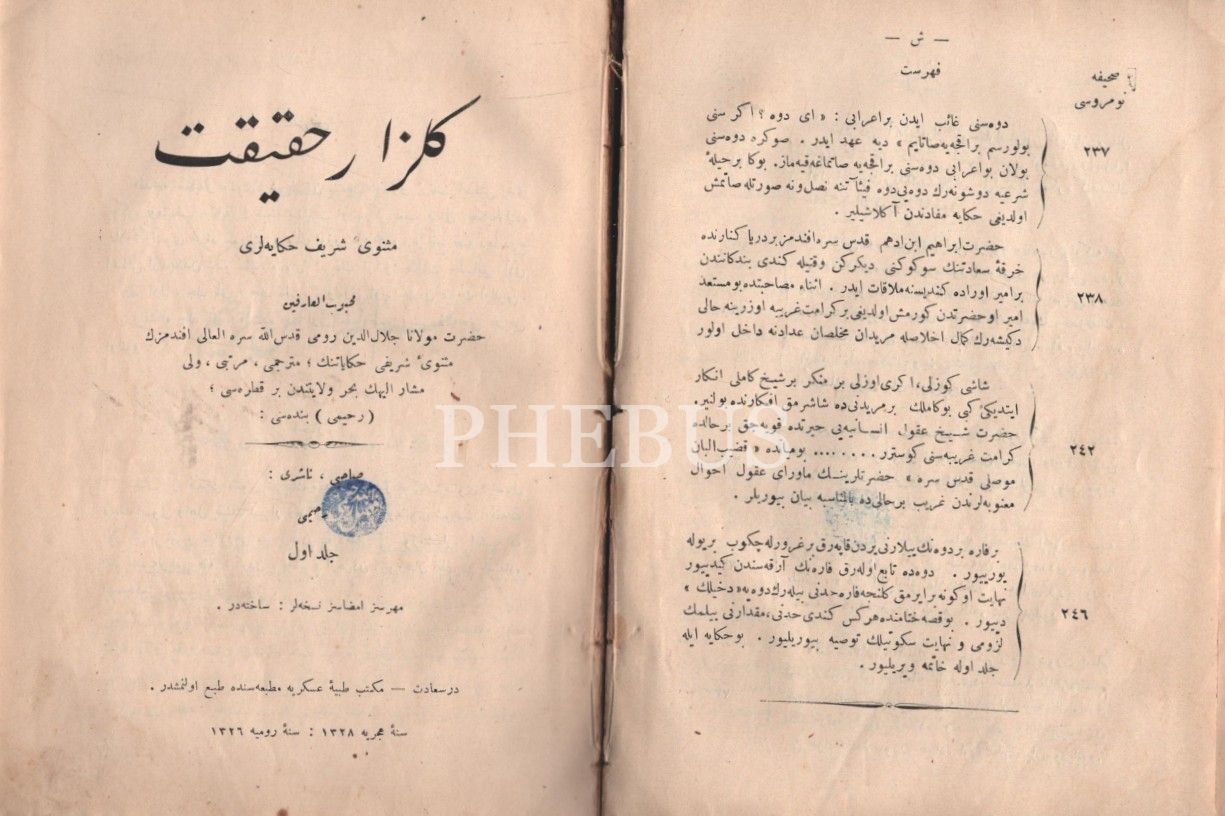 — ش —
فهرست
صحیفه
نومروسی
دوه‌سنی غائب ایدن براعرابی : « ای دوه ؟ اکر سنی
۲۳۷
بولورسم براقچه‌یه صاتایم » دیه عهد ایدر . صوکره دوه‌سنی
بولان بواعرابی دوه‌سنی براقچه‌یه صاتماغه قیه‌ماز. بوکا برحیلهٔ
شرعیه دوشونه‌رك دوه‌یی‌دوه فیئآتنه نصل‌ونه صورتله صاتمش
اولدیغی حکایه مفادندن آکلاشیلیر .
حضرت‌ابراهیم ابن‌ادهم قدس سره افندمز بردریا کنارنده
خرقهٔ سعادتنك سوکوکنی دیکرکن وقتیله کندی بندکانندن
۲۳۸
برامیر اوراده کندیسنه ملاقات ایدر . اثناء مصاحبتده بومستعد
امیر اوحضرتدن کورمش اولدیغی برکرامت غریبه اوزرینه حالی
دکیشه‌رك کمال اخلاصله مریدان مخلصان عدادنه داخل اولور
شاشی کوزلی، اکری اوزلی بر منکر برشیخ کاملی انکار
ایتدیکی کبی بوکاملك برمریدنی‌ده شاشرمق افکارنده بولنیر.
حضرت شیخ عقول انسانیه‌یی حیرتده قویه‌جق برحالده
۲۴۲
کرامت غریبه‌سنی کوسترر ........ بومیانده « قضیب‌البان
موصلی قدس سره » حضرتلرینك ماورای عقول احوال
معنویه‌لرندن غریب برحالی‌ده بالمناسبه بیان بیوریلر .
برفاره بردوه‌نك ییلارنی یردن قاپه‌رق برغرورله چکوب بریوله
یورییور . دوه‌ده تابع اوله‌رق فاره‌نك آرقه‌سندن کیدییور
نهایت اوکونه برایرمق کلنجه فاره حدنی بیله‌رك دوه‌یه« دخیلك »
۲۴٦
دییور . بوقصه ختامنده هرکس کندی حدنی، مقدارنی بیلمك
لزومی و نهایت سکوتیلك توصیه بیوریلیور . بوحکایه ایله
جلد اوله خاتمه ویریلیور .
کلزار حقیقت
مثنویٔ شریف حکایه‌لری
محبوب‌العارفین
حضرت مولانا جلال‌الدین رومی قدس‌الله سره العالی افندمزك
مثنویٔ شریفی حکایاتنك ؛ مترجمی ، مرتبی ، ولی
مشار الیهك بحر ولایتندن بر قطره‌سی ؛
( رحیمی ) بنده‌سی :
صاحبی ، ناشری :
جلد اول
مهرسز امضاسز نسخه‌لر : ساخته‌در .
درسعادت — مکتب طبیهٔ عسکریه مطبعه‌سنده طبع اولنمشدر .
سنهٔ هجریه ۱۳۲۸ : سنهٔ رومیه ۱۳۲٦
PHEBUS